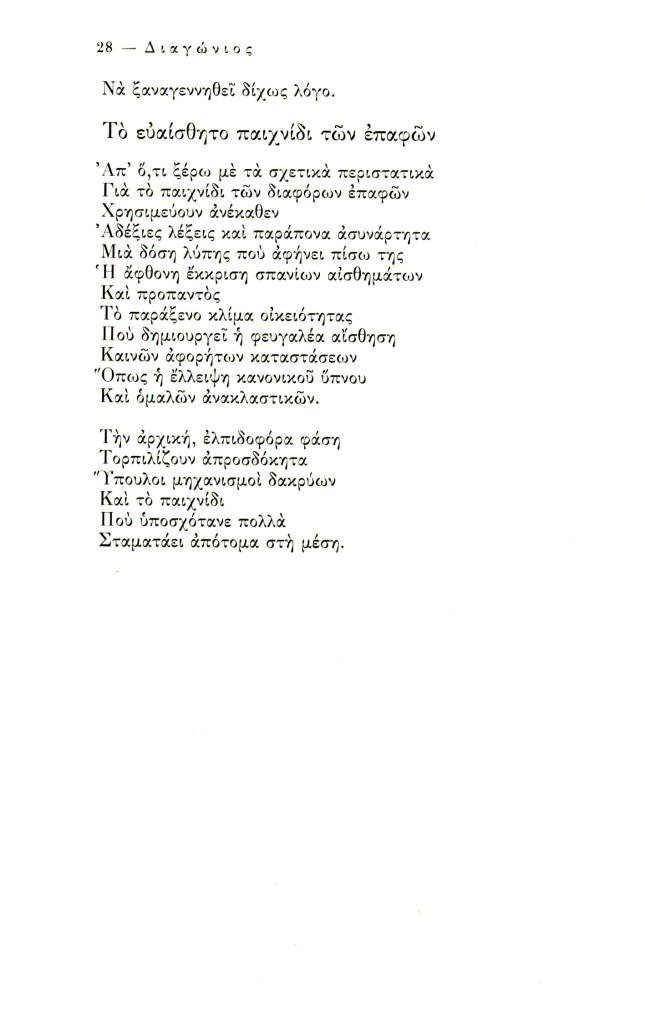 28 — Διαγώνιος
Νὰ ξαναγεννηθεῖ δίχως λόγο.
Τὸ εὐαίσθητο παιχνίδι τῶν ἐπαφῶν
Ἀπ' ὅ,τι ξέρω μὲ τὰ σχετικὰ περιστατικὰ
Γιὰ τὸ παιχνίδι τῶν διαφόρων ἐπαφῶν
Χρησιμεύουν ἀνέκαθεν
Ἀδέξιες λέξεις καὶ παράπονα ἀσυνάρτητα
Μιὰ δόση λύπης ποὺ ἀφήνει πίσω της
Ἡ ἄφθονη ἔκκριση σπανίων αἰσθημάτων
Καὶ προπαντὸς
Τὸ παράξενο κλίμα οἰκειότητας
Ποὺ δημιουργεῖ ἡ φευγαλέα αἴσθηση
Καινῶν ἀφορήτων καταστάσεων
Ὅπως ἡ ἔλλειψη κανονικοῦ ὕπνου
Καὶ ὁμαλῶν ἀνακλαστικῶν.
Τὴν ἀρχική, ἐλπιδοφόρα φάση
Τορπιλίζουν ἀπροσδόκητα
Ὕπουλοι μηχανισμοὶ δακρύων
Καὶ τὸ παιχνίδι
Ποὺ ὑποσχότανε πολλὰ
Σταματάει ἀπότομα στὴ μέση.